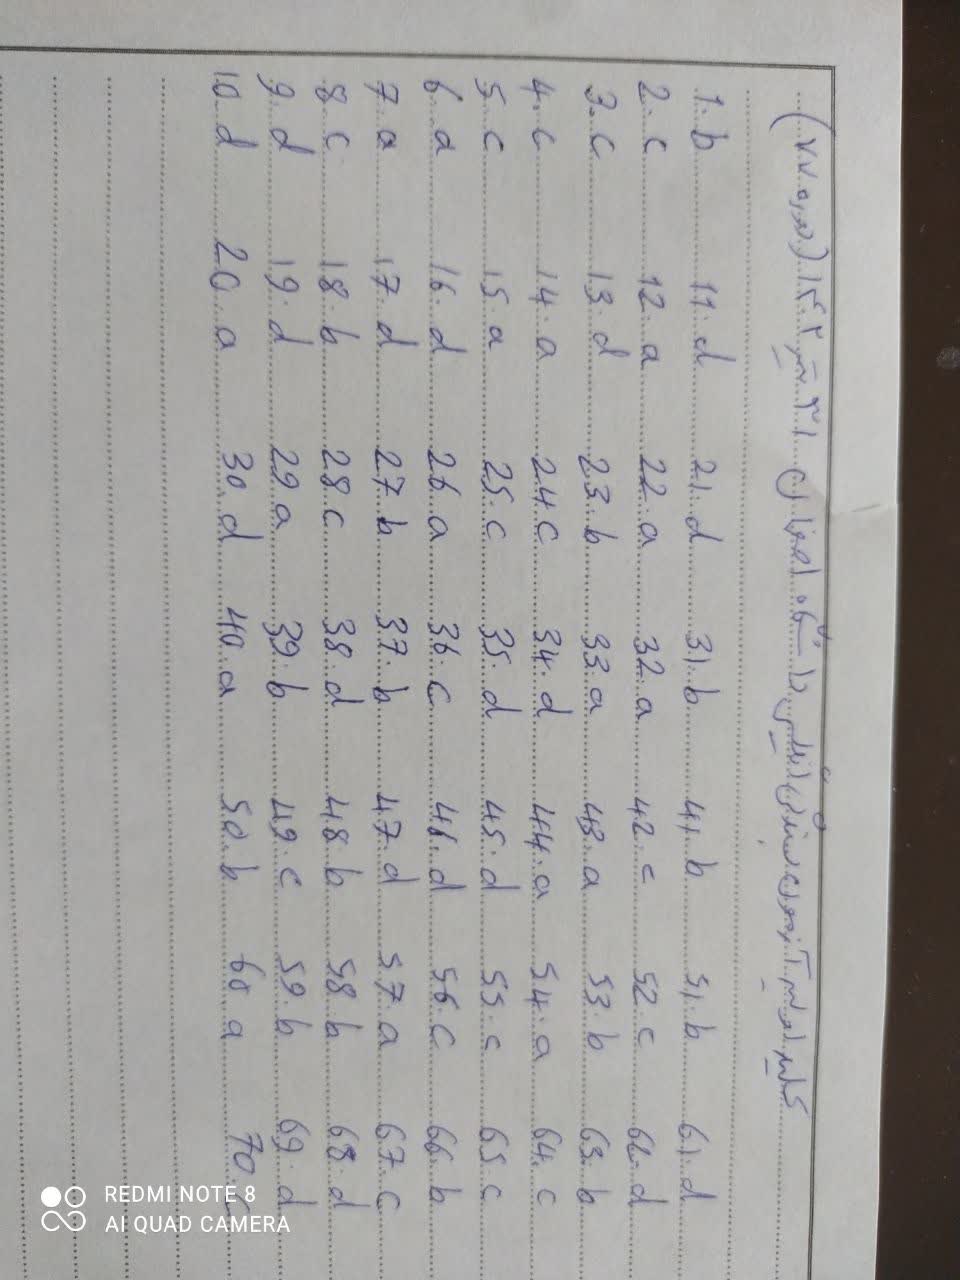 1. b 11. d 21. d 31. b 41. b 51. b 61. d
2. c 12. a 22. a 32. a 42. c 52. c 62. d
3. c 13. d 23. b 33. a 43. a 53. b 63. b
4. c 14. a 24. c 34. d 44. a 54. a 64. c
5. c 15. a 25. c 35. d 45. d 55. c 65. c
6. a 16. d 26. a 36. c 46. d 56. c 66. b
7. a 17. d 27. b 37. b 47. d 57. a 67. c
8. c 18. b 28. c 38. d 48. b 58. b 68. d
9. d 19. d 29. a 39. b 49. c 59. b 69. d
10. d 20. a 30. d 40. a 50. b 60. a 70.
REDMI NOTE 8
AI QUAD CAMERA